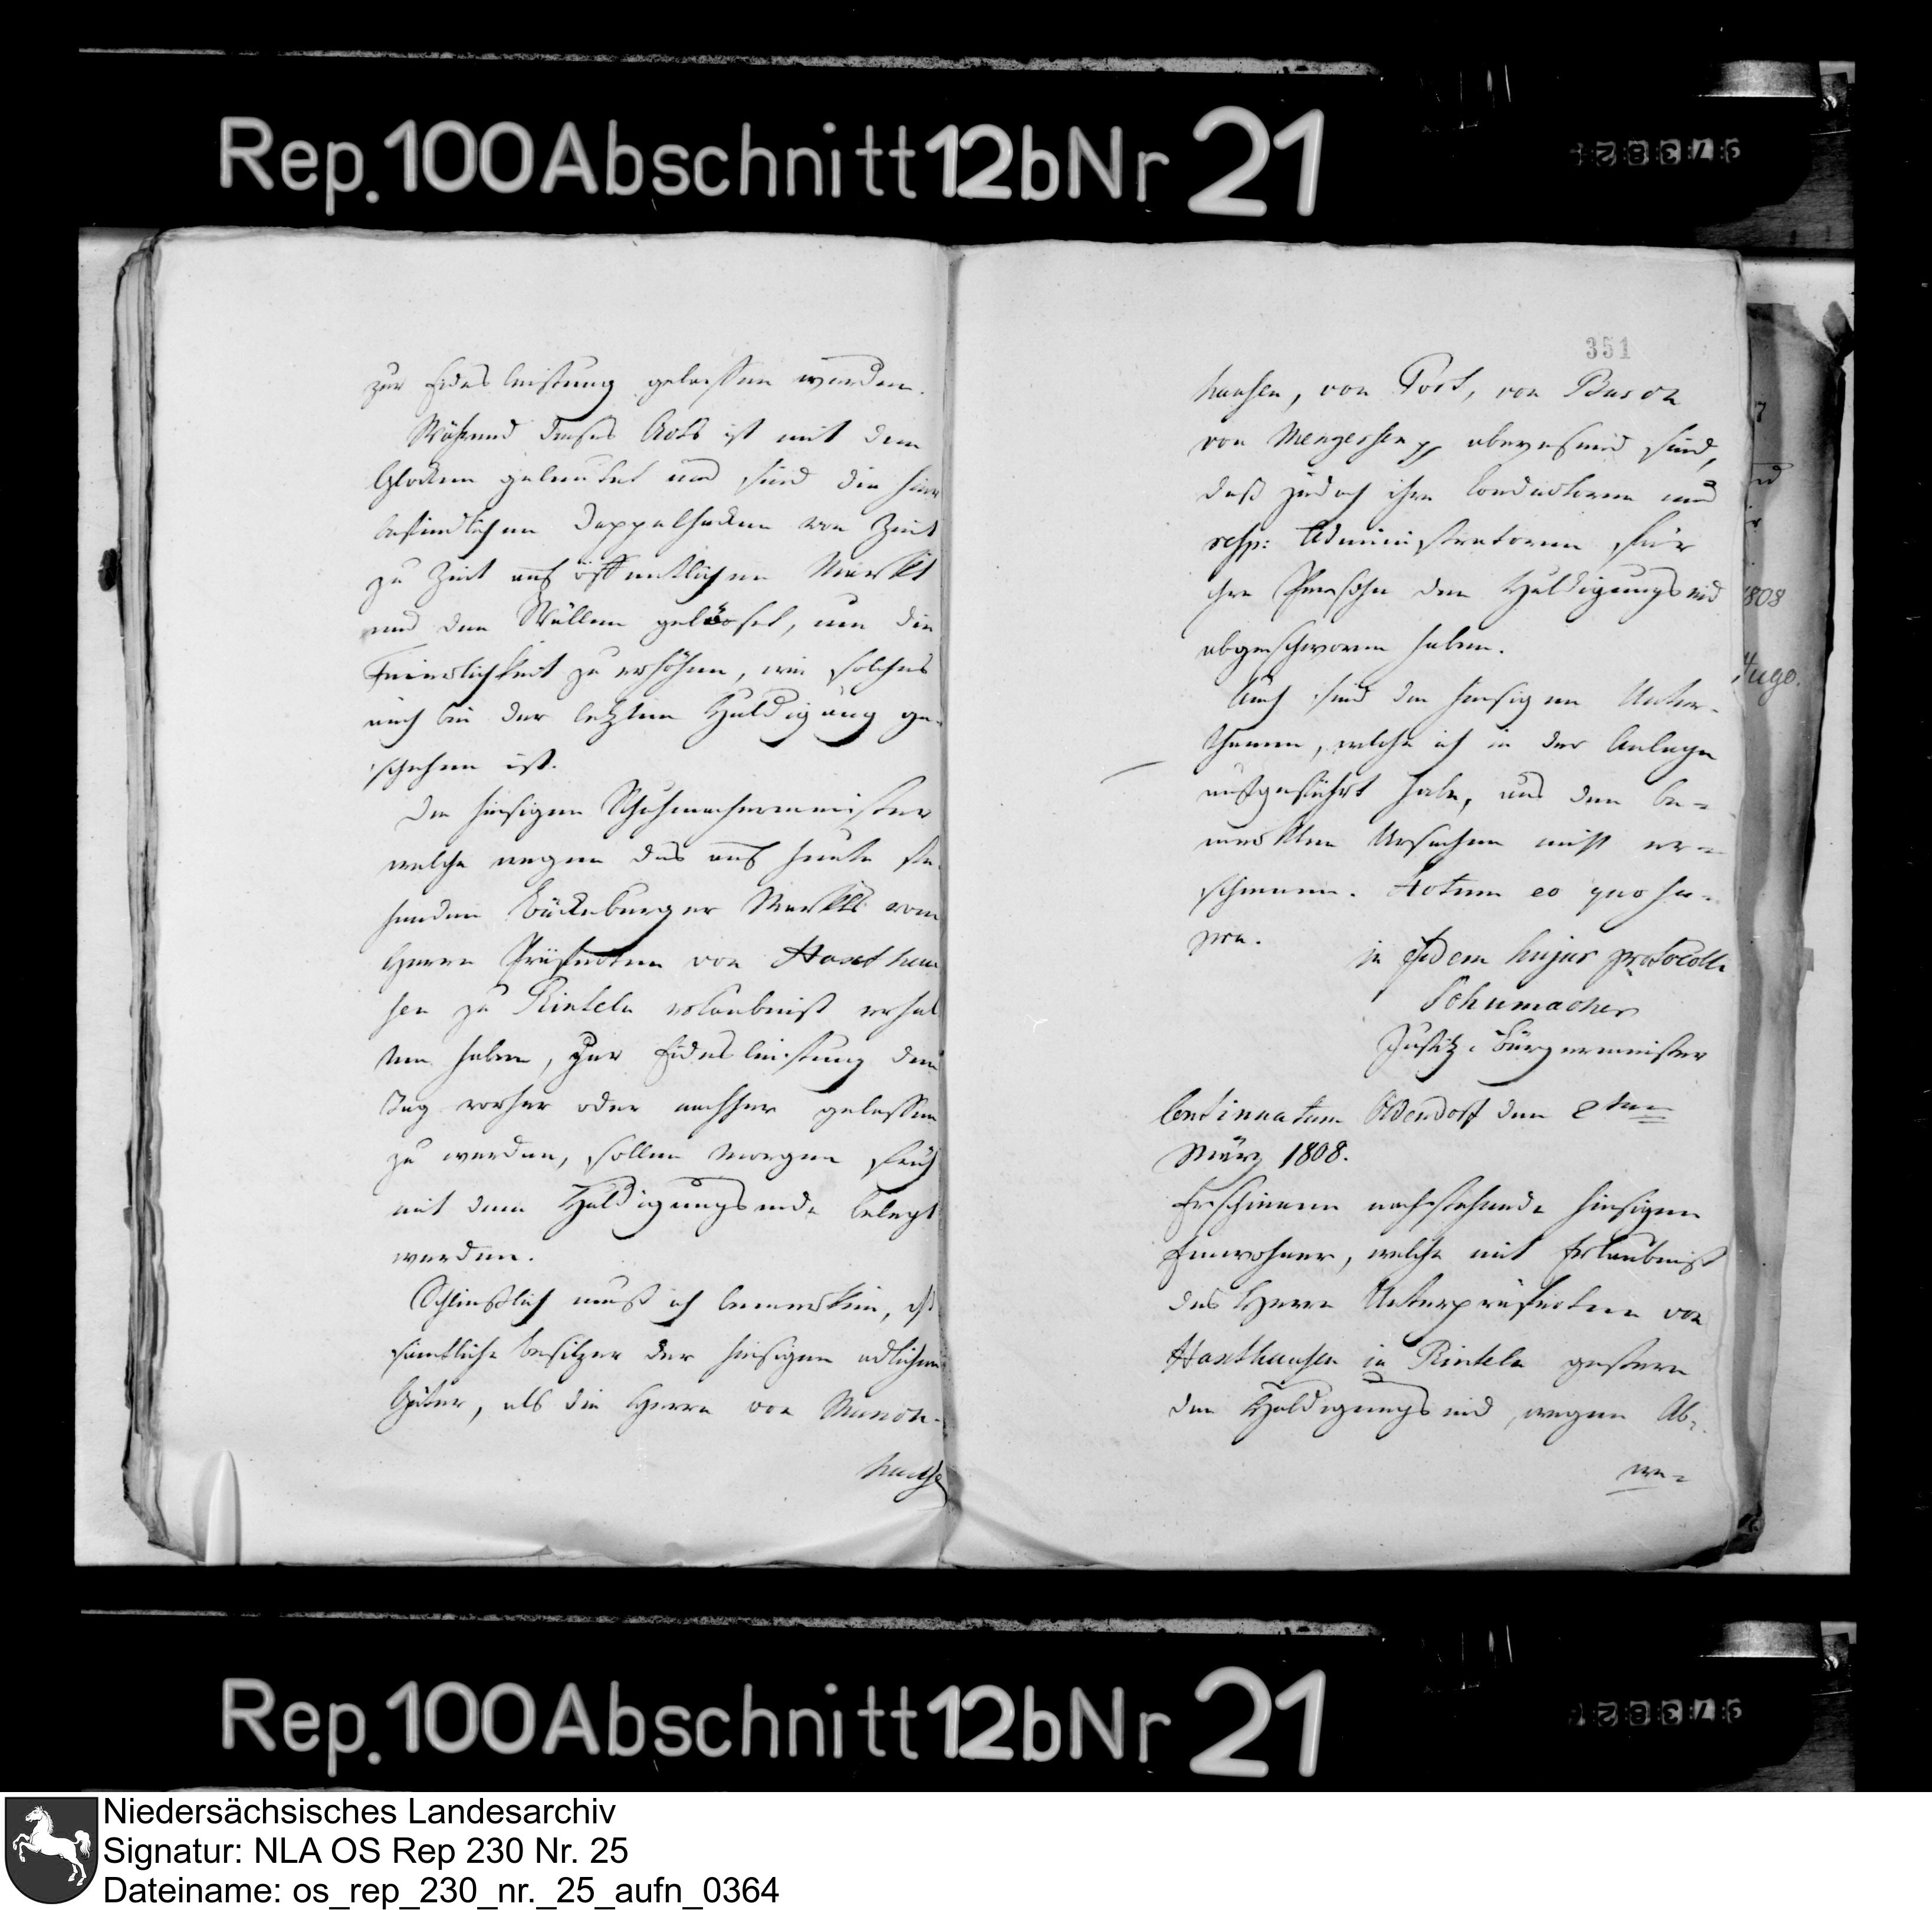 Rep.100Abschnitt12bNr 21
zur Eides leistung gelassen werden.
Während dieses Acts ist mit den
Glocken gelautet und sind die hier
befindlichen Doppelhacken von Zeit
zu Zeit auf öffentlichen Markt
und den Wällen gelöset, um die
Feierlichkeit zu erhöhen, wie solches
auch bei der letzten Huldigung ge-
schehen ist.
Die hiesigen Schuhmachermeister
welche wegen des auf heute ste-
henden Bückeburger Markts vom
Herrn Präfecten von Haxthau
sen zu Rinteln erlaubniß erhal
ten haben, zur Eides leistung den
Tag vorher oder nachher gelassen
zu werden, sollen morgen früh
mit dem Huldigungseide belegt
werden.
Schließlich muß ich bemerken, dß
sämtliche besitzer der hiesigen adlichen
Güter, als die Herrn von Münch-
hause
351
hausen, von Post, von Busch
von Mengersen pp abwesend sind,
daß jedoch ihre Conductoren und
resp: Administratoren für
ihre Persohn den Huldigungs eid
abgeschworen haben.
Auch sind die hiesigen Unter-
thanen, welche ich in der Anlage
aufgeführt habe, aus den be-
merkten Ursachen nicht er-
schienen. Actum eo quo su-
pra.
in fidem hujus protocolli
Schumacher
Justiz-Bürgermeister
Continuatum Oldendorf den 8ten
März 1808.
Erschienen nachstehende hiesigen
Einwohner, welche mit Erlaubniß
des Herrn Unterpräfecten von
Haxthausen in Rinteln gestern
den Huldigungs eid, wegen Ab-
we-
808
Hugo.
Rep.100Abschnitt12bNr 21
Niedersächsisches Landesarchiv
Signatur: NLA OS Rep 230 Nr. 25
Dateiname: os_rep_230_nr._25_aufn_0364